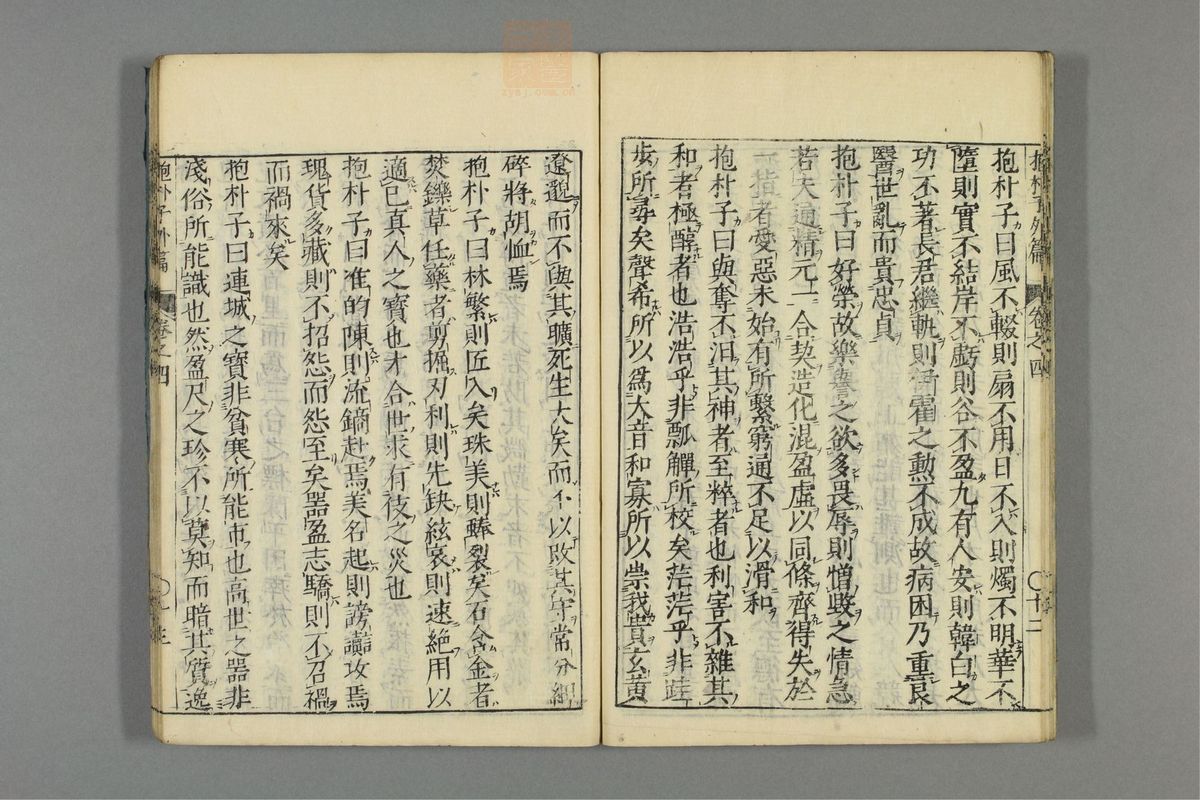 抱朴子曰風不輟則扇不用日不入則燭不明華不
墮則實不結岸不虧則谷不盈九有人安則韓白之
功不著長君繼軌則伊霍之勳不成故病困乃重良
醫世亂而貴忠貞
抱朴子曰好榮故樂譽之欲多畏辱則憎毀之情急
若夫通精元一合契造化混盈虛以同條齊得失於
一指者愛惡未始有所繫窮通不足以滑和
抱朴子曰與奪不汨其神者至粹者也利害不雜其
和者極醇者也浩浩乎非瓢觶所校矣茫茫乎非跬
步所尋矣聲希所以為大音和寡所以崇我貴玄黃
抱朴子外篇
卷之四
十二
遼邈而不與其曠死生大矣而不以敗其守常分細
碎將胡恤焉
抱朴子曰林繁則匠入矣珠美則蚌裂矣石含金者
焚鑠草任藥者剪掘刃利則先缺絃哀則速絕用以
適己真人之寶也才合世求有伎之災也
抱朴子曰准的陳則流鏑赴焉美名起則謗讟攻焉
瑰貨多藏則不招怨而怨至矣器盈志驕則不召禍
而禍來矣
抱朴子曰連城之寶非貧寒所能市也高世之器非
淺俗所能識也然盈尺之珍不以莫知而暗其質逸
抱朴子外篇
卷之四